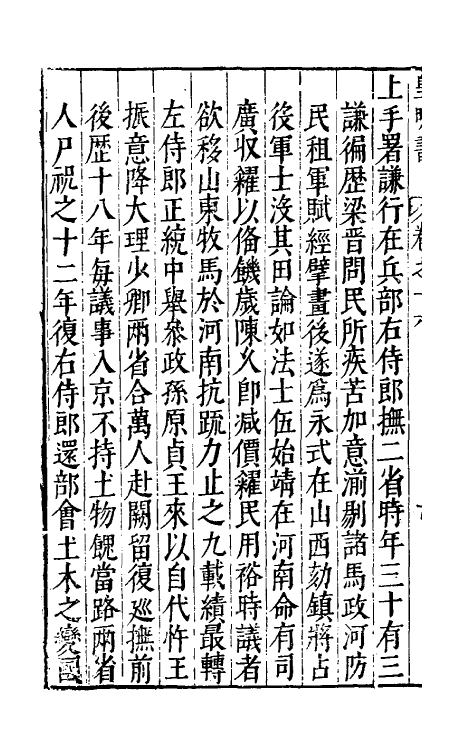 皇明書 卷之十六
上手署謙行在兵部右侍郎撫二省時年三十有三
謙徧歷梁晉問民所疾苦加意湔剔諸馬政河防
民租軍賦經擘畫後遂爲永式在山西劾鎮將占
役軍士沒其田論如法士伍始靖在河南命有司
廣収糴以俻饑歲陳乆卽减價糶民用裕時議者
欲移山東牧馬於河南抗䟽力止之九載績最轉
左侍郎正統中舉叅政孫原貞王來以自代忤王
振意降大理少卿兩省合萬人赴闕留復廵撫前
後歷十八年每議事入京不持土物餽當路兩省
人尸祝之十二年復右侍郎還部會土木之變國